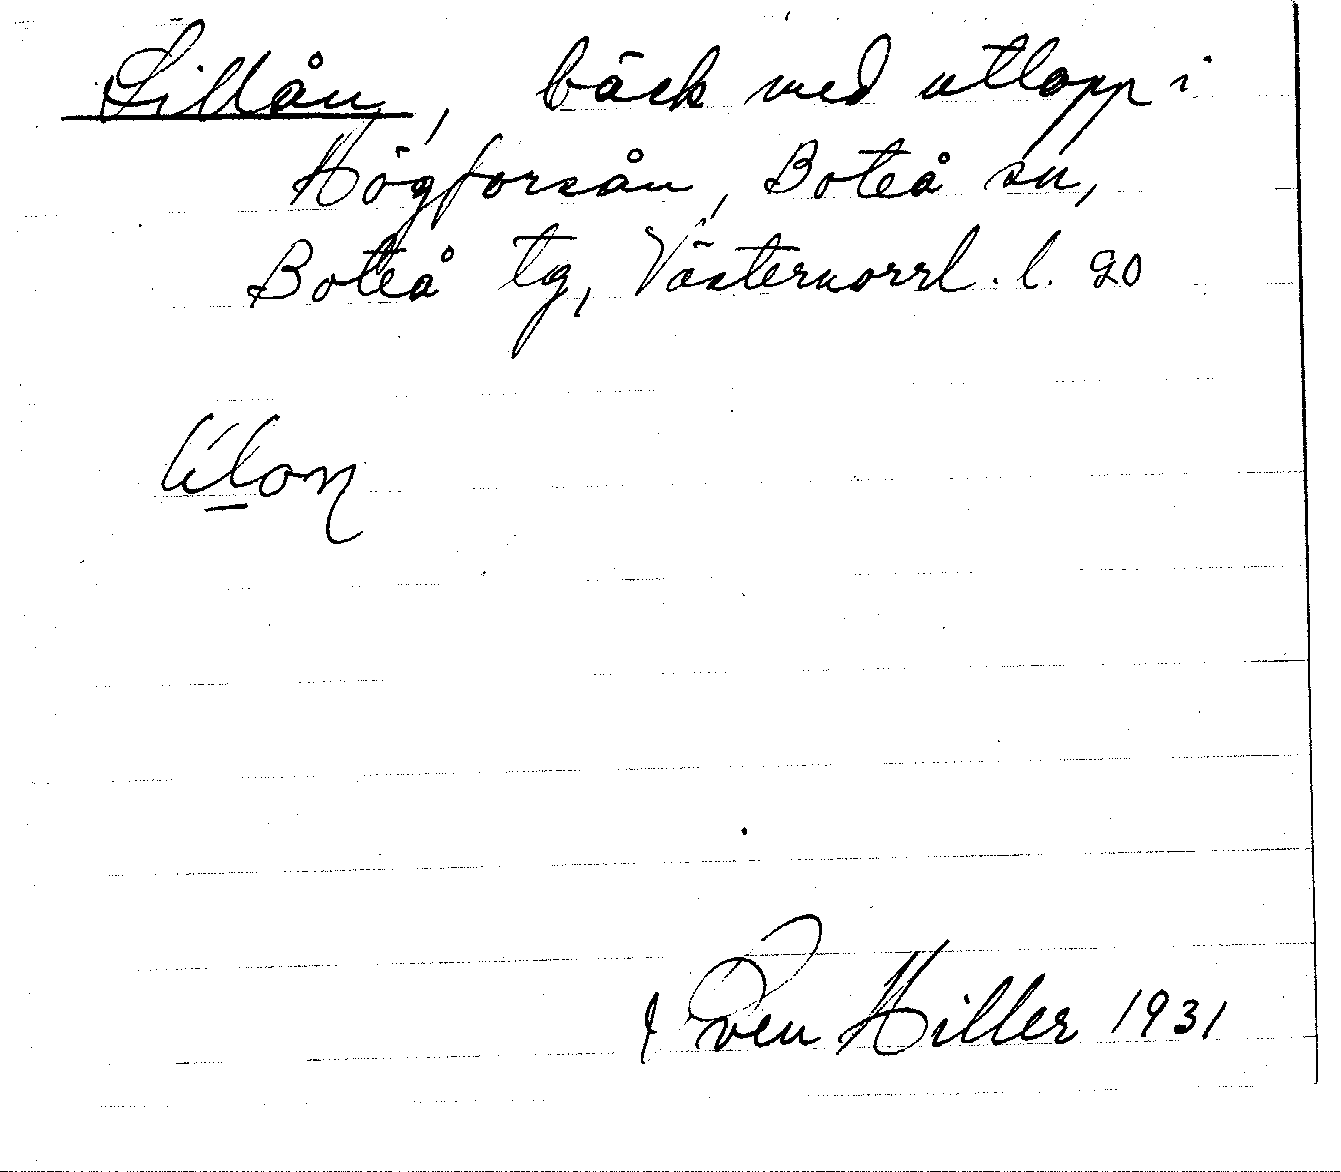 Lillån, bäck med utlopp i
Högforsån, Boteå sn,
Boteå tg, Västernorrl. l. 20
Sven Hiller 1931